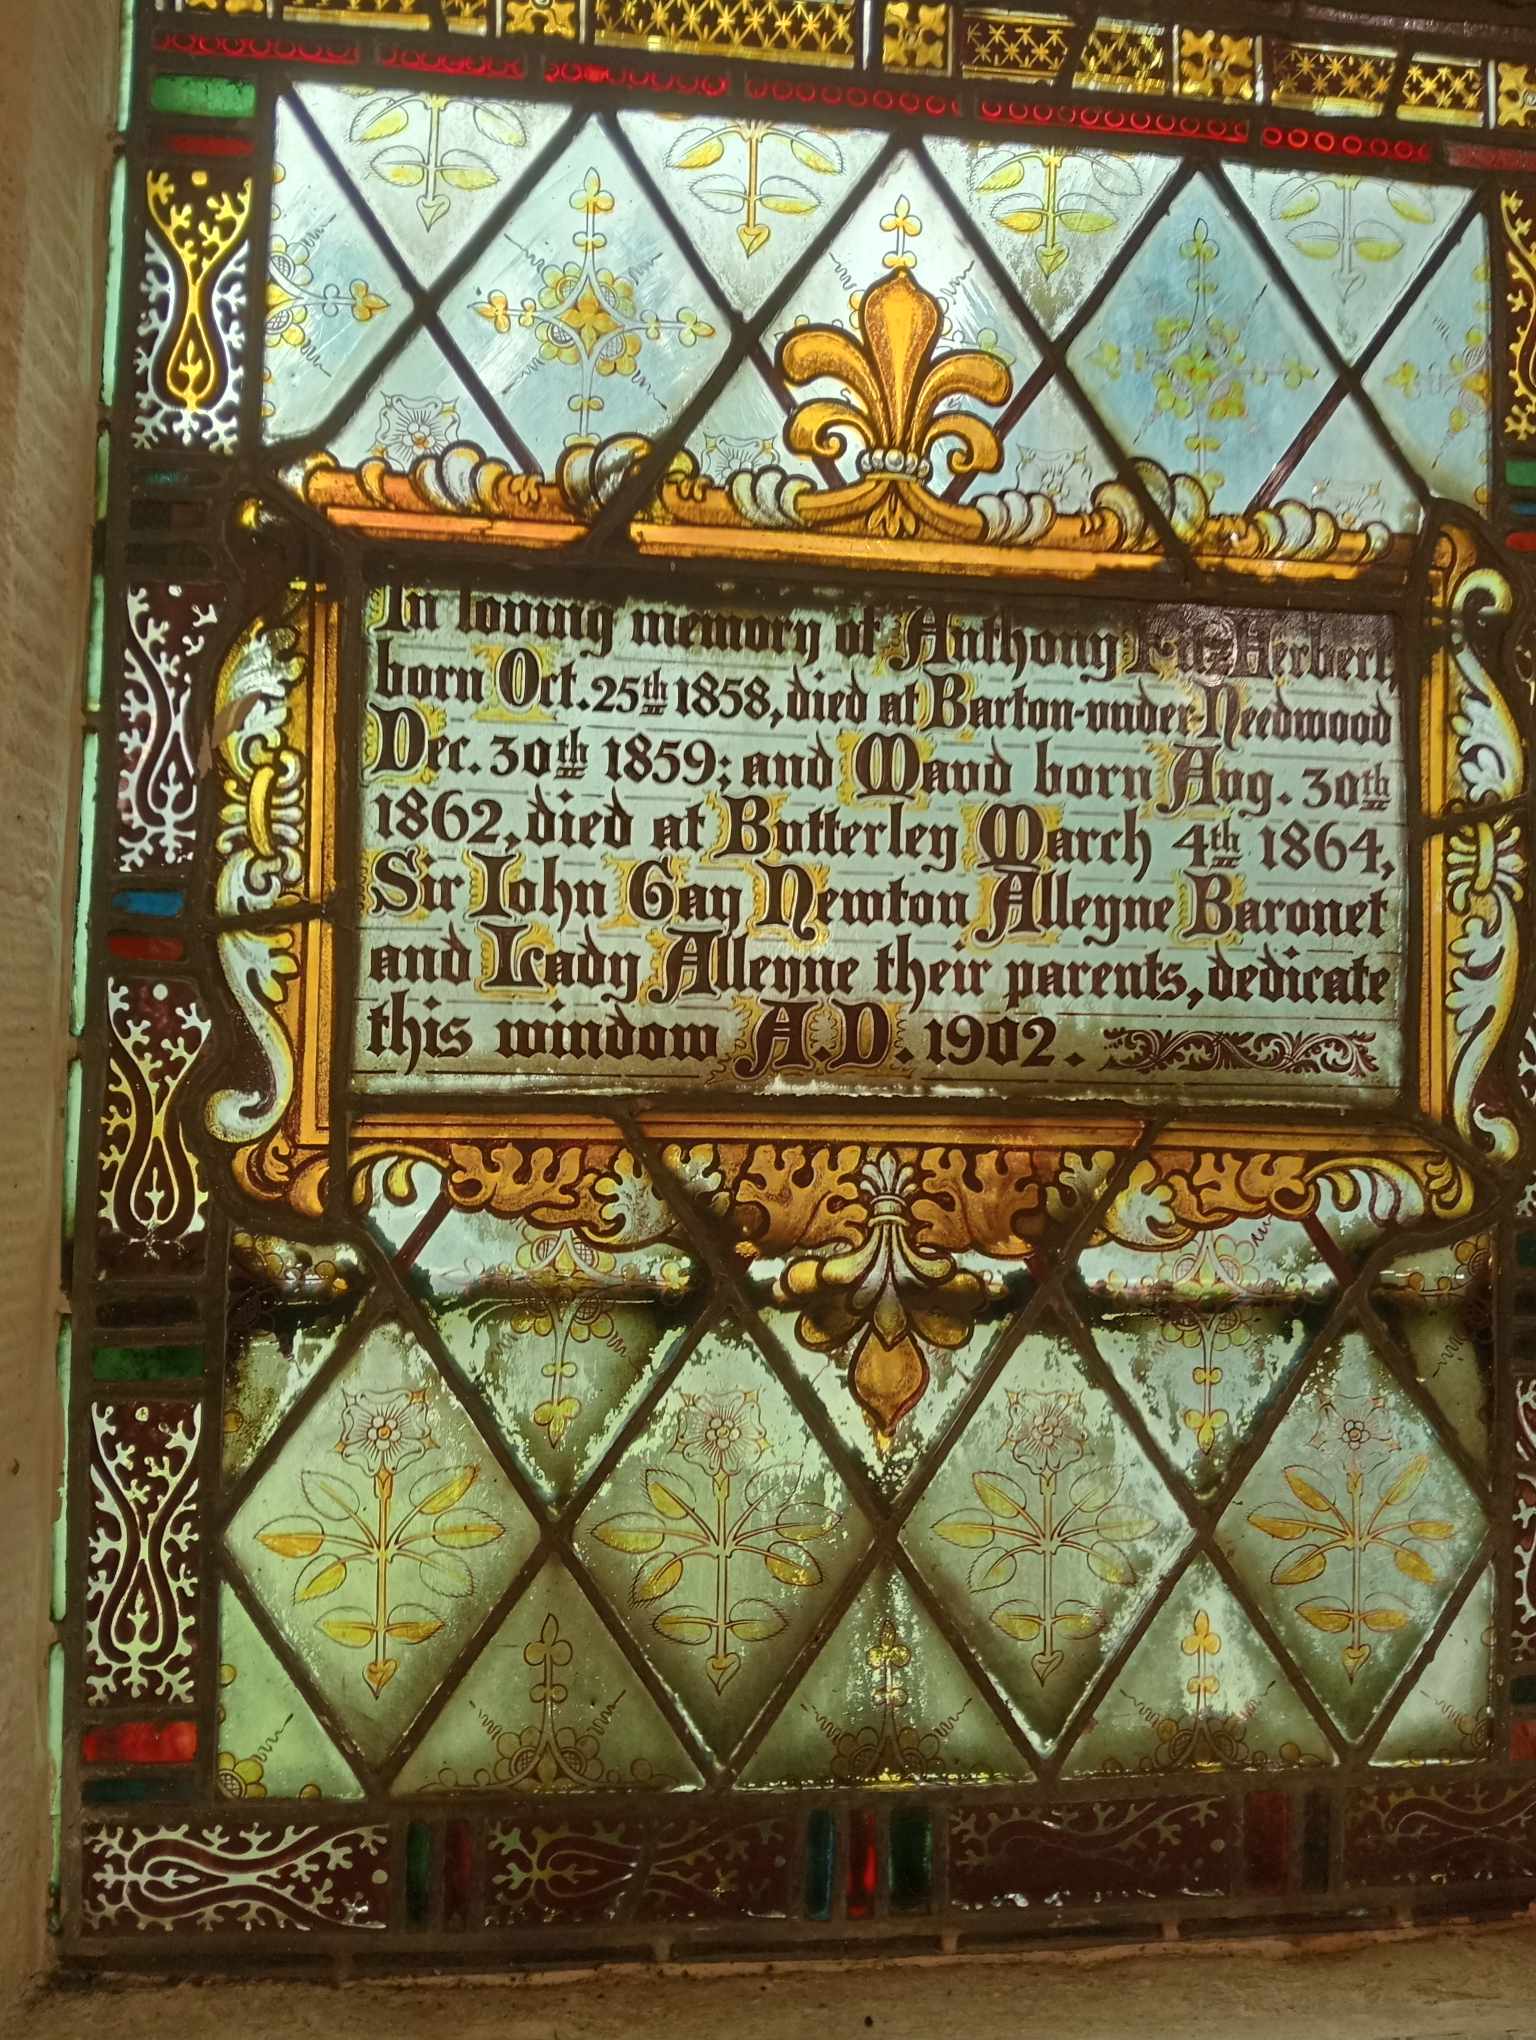 In loving memory of Anthony FitzHerbert
born Oct. 25th 1858, died at Barton-under-Needwood
Dec. 30th 1859; and Maud born Aug. 30th
1862, died at Butterley March 4th 1864,
Sir John Gay Newton Alleyne Baronet
and Lady Alleyne their parents, dedicate
this window A.D. 1902.